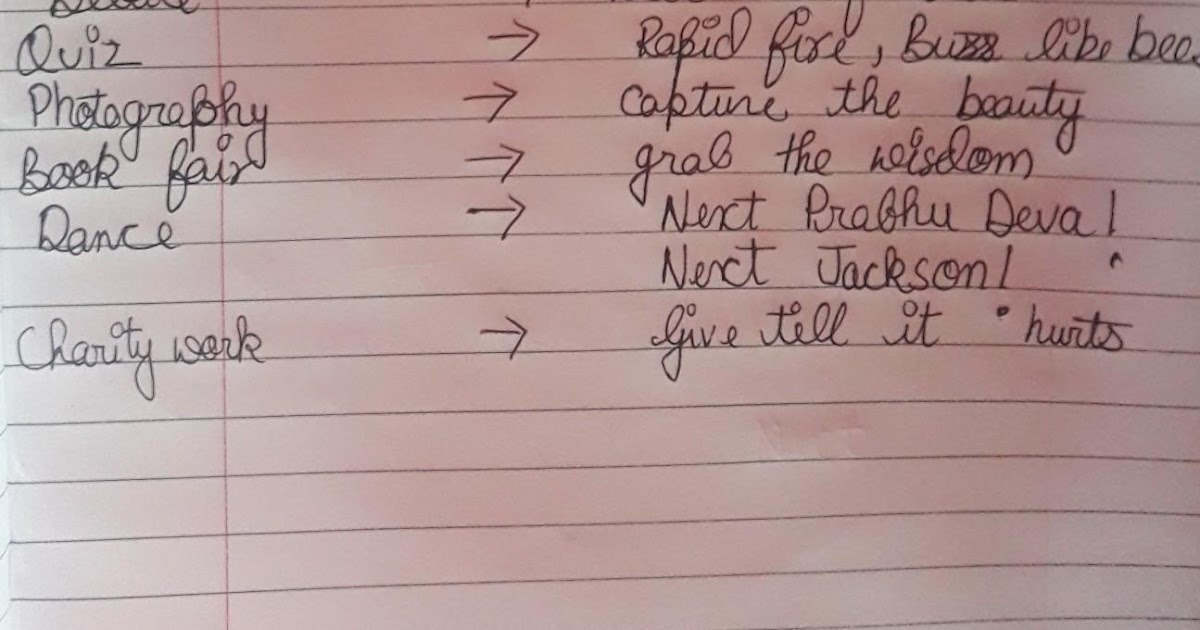 Quiz → Rapid fire, Buzz like bee
Photography → Capture the beauty
Book fair → grab the wisdom
Dance → Next Prabhu Deva!
Next Jackson!
Charity work → Give till it hurts